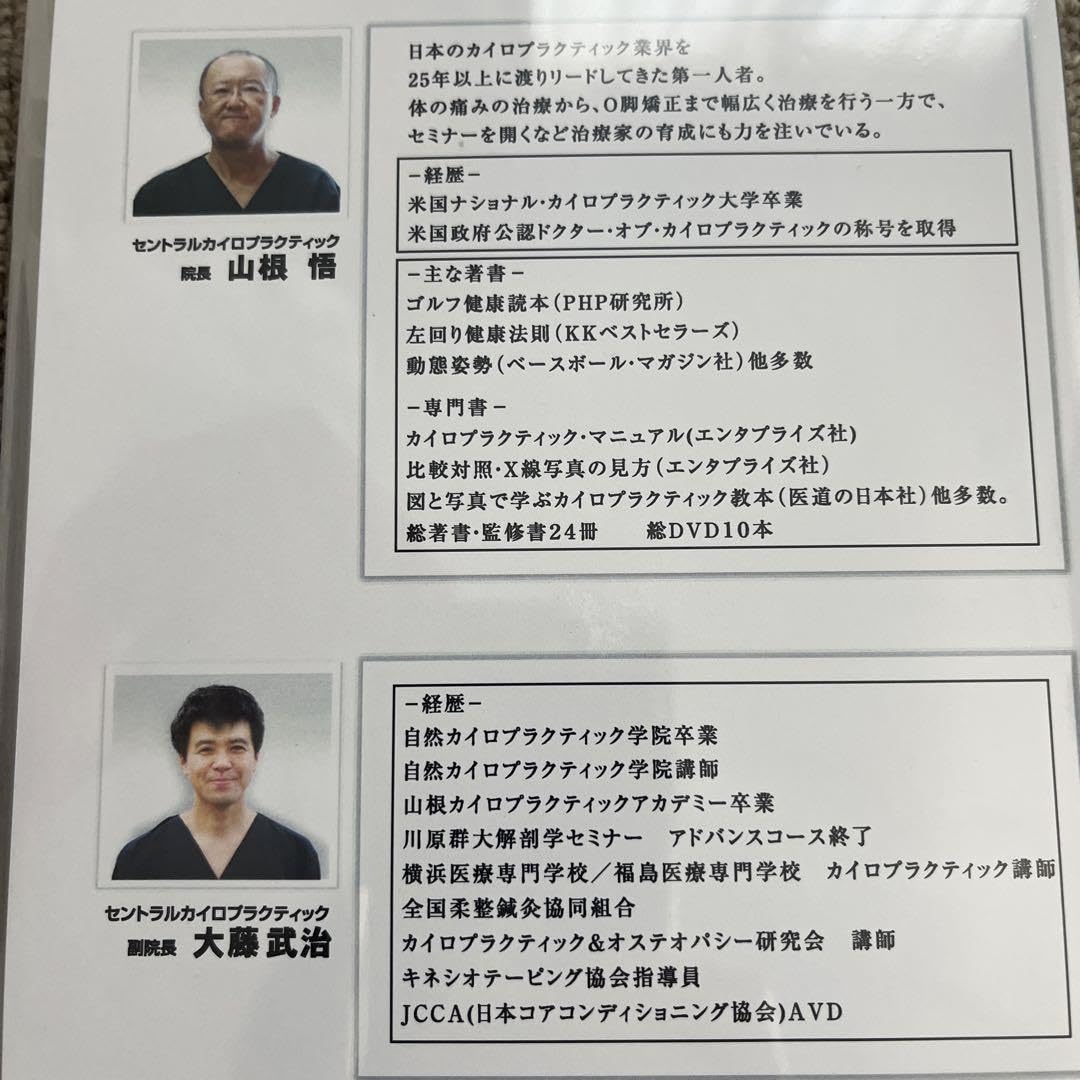 日本のカイロプラクティック業界を
25年以上に渡りリードしてきた第一人者。
体の痛みの治療から、O脚矯正まで幅広く治療を行う一方で、
セミナーを開くなど治療家の育成にも力を注いでいる。
－経歴－
米国ナショナル・カイロプラクティック大学卒業
米国政府公認ドクター・オブ・カイロプラクティックの称号を取得
セントラルカイロプラクティック
院長 山根 悟
－主な著書－
ゴルフ健康読本(PHP研究所)
左回り健康法則(KKベストセラーズ)
動態姿勢(ベースボール・マガジン社)他多数
－専門書－
カイロプラクティック・マニュアル(エンタプライズ社)
比較対照・X線写真の見方(エンタプライズ社)
図と写真で学ぶカイロプラクティック教本(医道の日本社)他多数。
総著書・監修書24冊　総DVD10本
－経歴－
自然カイロプラクティック学院卒業
自然カイロプラクティック学院講師
山根カイロプラクティックアカデミー卒業
川原群大解剖学セミナー　アドバンスコース終了
横浜医療専門学校／福島医療専門学校　カイロプラクティック講師
全国柔整鍼灸協同組合
カイロプラクティック&オステオパシー研究会　講師
キネシオテーピング協会指導員
JCCA(日本コアコンディショニング協会)AVD
セントラルカイロプラクティック
副院長 大藤武治